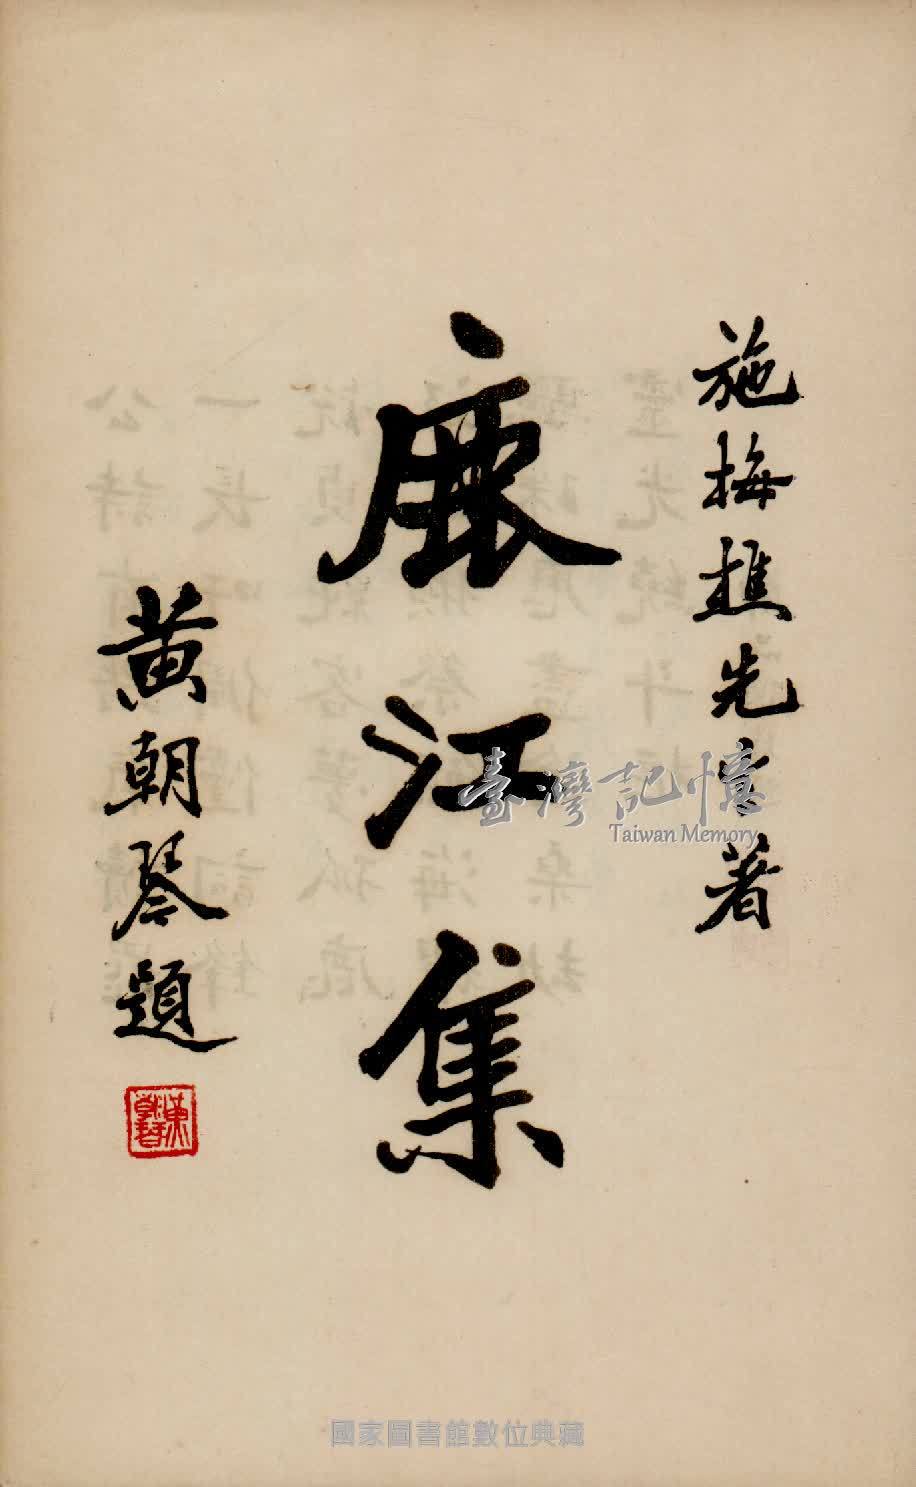 施梅樵先生著
鹿江集
黃朝琴題
臺灣記憶
Taiwan Memory
國家圖書館數位典藏